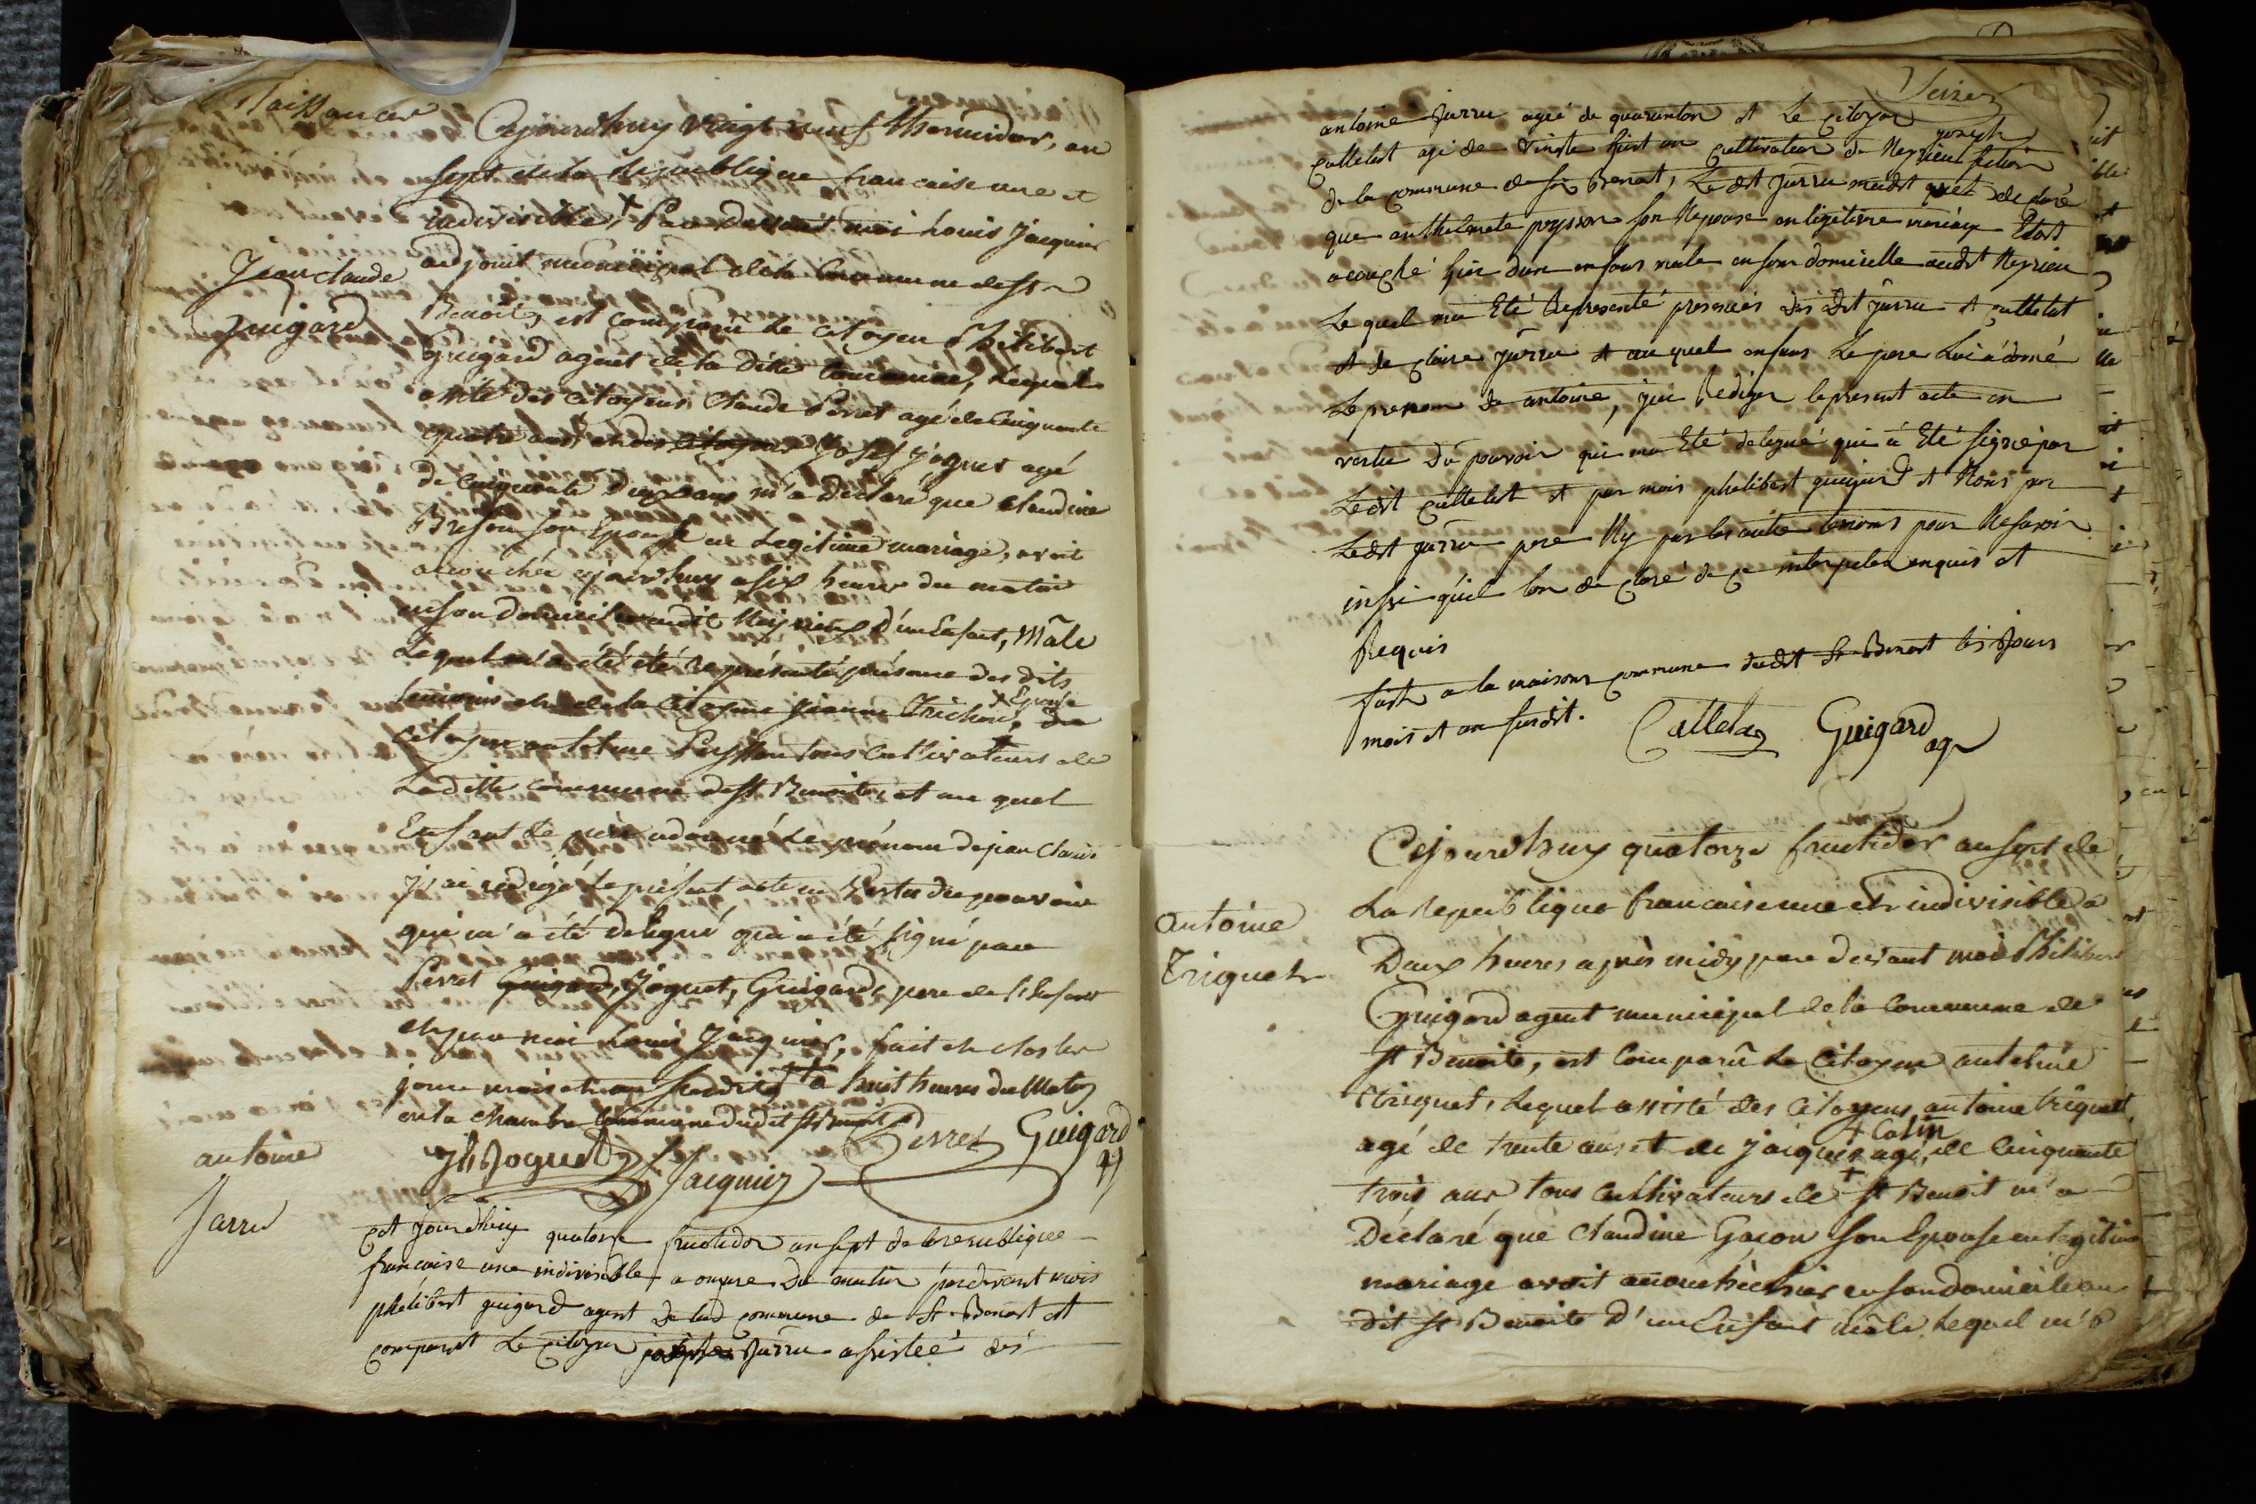 Naissances
Cejourdhuy vingt neuf thermidor, an
sept de la Republique francaise une et
indivisible, + Par devant moi Louis Jacquier
adjoint municipal de la Commune de St
Jean Claude
Guigard
Benoit, est comparu le citoyen Philibert
Guigard agent de la ditte Commune, lequel
assité des citoyens Claude Perret agé de Cinquante
quatre ans et du citoyen Josef Joguet agé
de Cinquante deux ans m'a déclaré que Claudine
son Epouse en Legitime mariage, avoit
accouchée cejourdhuy a six heures du matin
en son domicile audit d'un Enfant, Mâle
Lequel m'a été été représenté présence des dits
temoins et de la Citoyenne Jeanne + Epouse du
citoyen antelme Peysson tous Cultivateurs de
Laditte commune de St Benoite, et au quel
Enfant le père a donné le prénom de jean Claude
j'ai rédigé le présent acte en Vertu du pouvoir
qui m'a été délégué qui a été signé par
Perret Guigard, Joguet, Guigard, pere de l'Enfant
et par moi Louis Jacquier, fait et clos les
jour mois et an susdits a huit heures du Matin
en la chambre Commune dudit St Benoit
Jh Joguet Jacquier Perret Guigard
antoine
Jarru
Cet jourdhuy quatorse fructidor an sept de la republique
francaise une indivisible a onsure du matin pardevant mois
phelibert guigard agent de lad commune de St Benoit et
comparut Le Citoyen joseph Jarru assisteé des
antoine Jarru agée de quaranton et Le Citoyen joseph
cattelat agé de vingte huit an cultivateur de Neyrieu
de la commune de St Benoit, Le dit Jarru madit et de claré
que anthelmete peysson son Nepouse en legitime mariage Etoit
acouché hier dun enfans male en son domicille audt Neyrieu
Le quel ma Eté Representé presences des dit Jarru et cattelat
et de claire Jarru et au quel enfans Le pere Lui a donné
Le prenom de antoine, jai Rediger le present acte en
vertu du pouvoir qui ma Eté delegué qui a Eté signe par
Ledit cattelat et par mois phelibert guigard et Nons par
Ledit jarru pere Ny par les autre temoins pour Ne savoir
insi quil lon de claré de ce interpeler enquis et
Requis
fait a la maison commune dudit St Benoit les Jours
mois et an susdit. Cattelat Guigard ag
Cejourdhuy quatorze fructidor an sept de
La Republique francaise une et indivisible a
antoine
Triquet
Deux heures après midy par devant moi Philibert
Guigard agent municipal de la Commune de
St Benoite, est Comparû le Citoyen antelme
triquet, Lequel assisté des Citoyens antoine triquet
agé de trente ans et de jacques + Colin agé de Cinquante
trois ans tous Cultivateurs de + St Benoit m'a
Déclaré que Claudine Gacon son Epouse en legitime
mariage avoit accouchée hier en son domicile au
dit St Benoite d'un Enfant mâle Lequel m'a